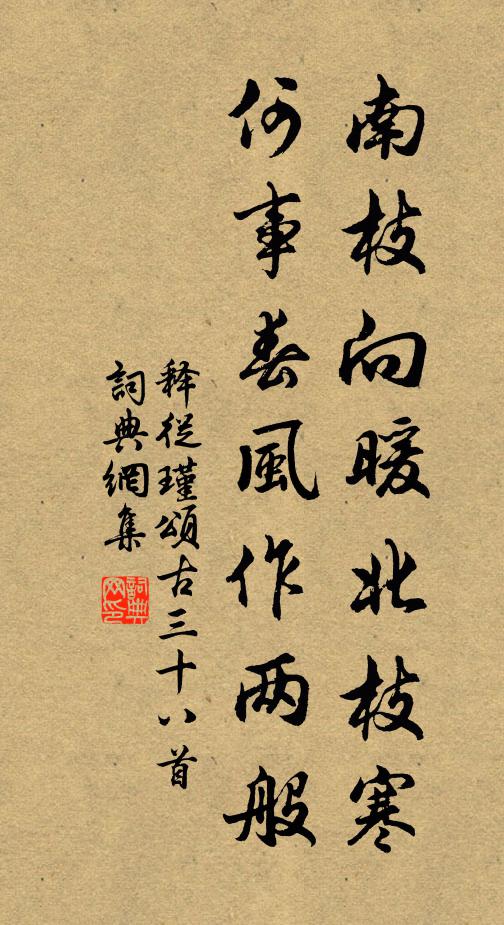 南枝向暖北枝寒
何事春風作两般
释從瑾頌古三十八首
詞典網集
詞典网印